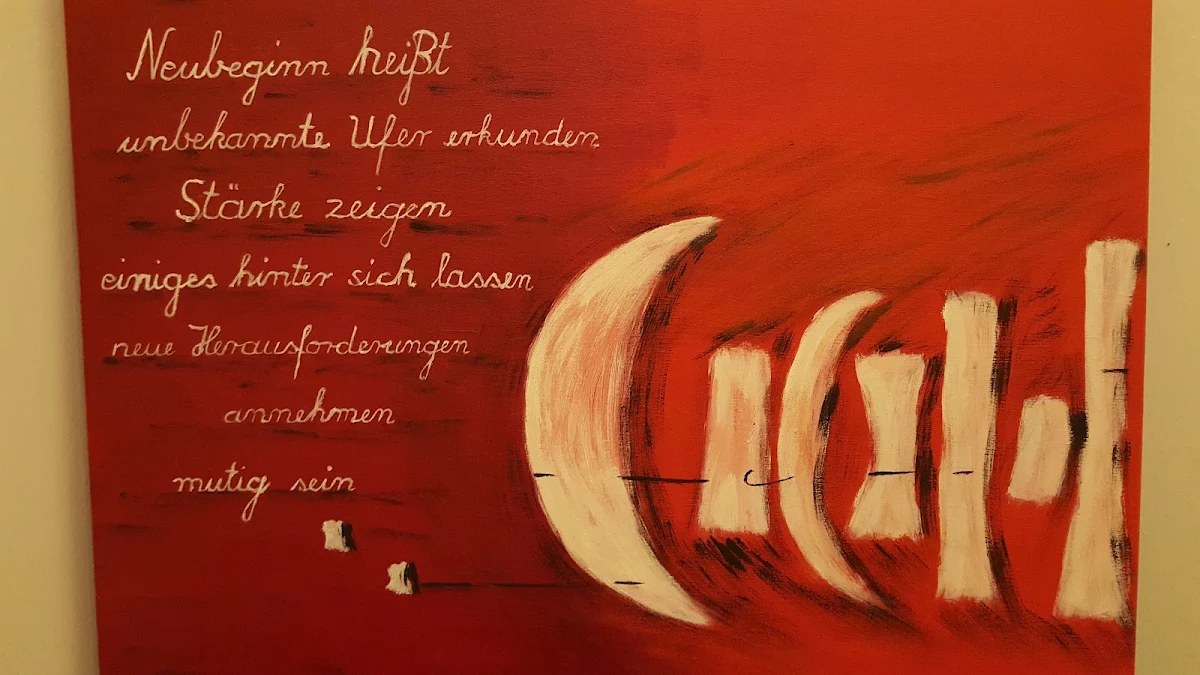 Neubeginn heißt
unbekannte Ufer erkunden
Stärke zeigen
einiges hinter sich lassen
neue Herausforderungen
annehmen
mutig sein